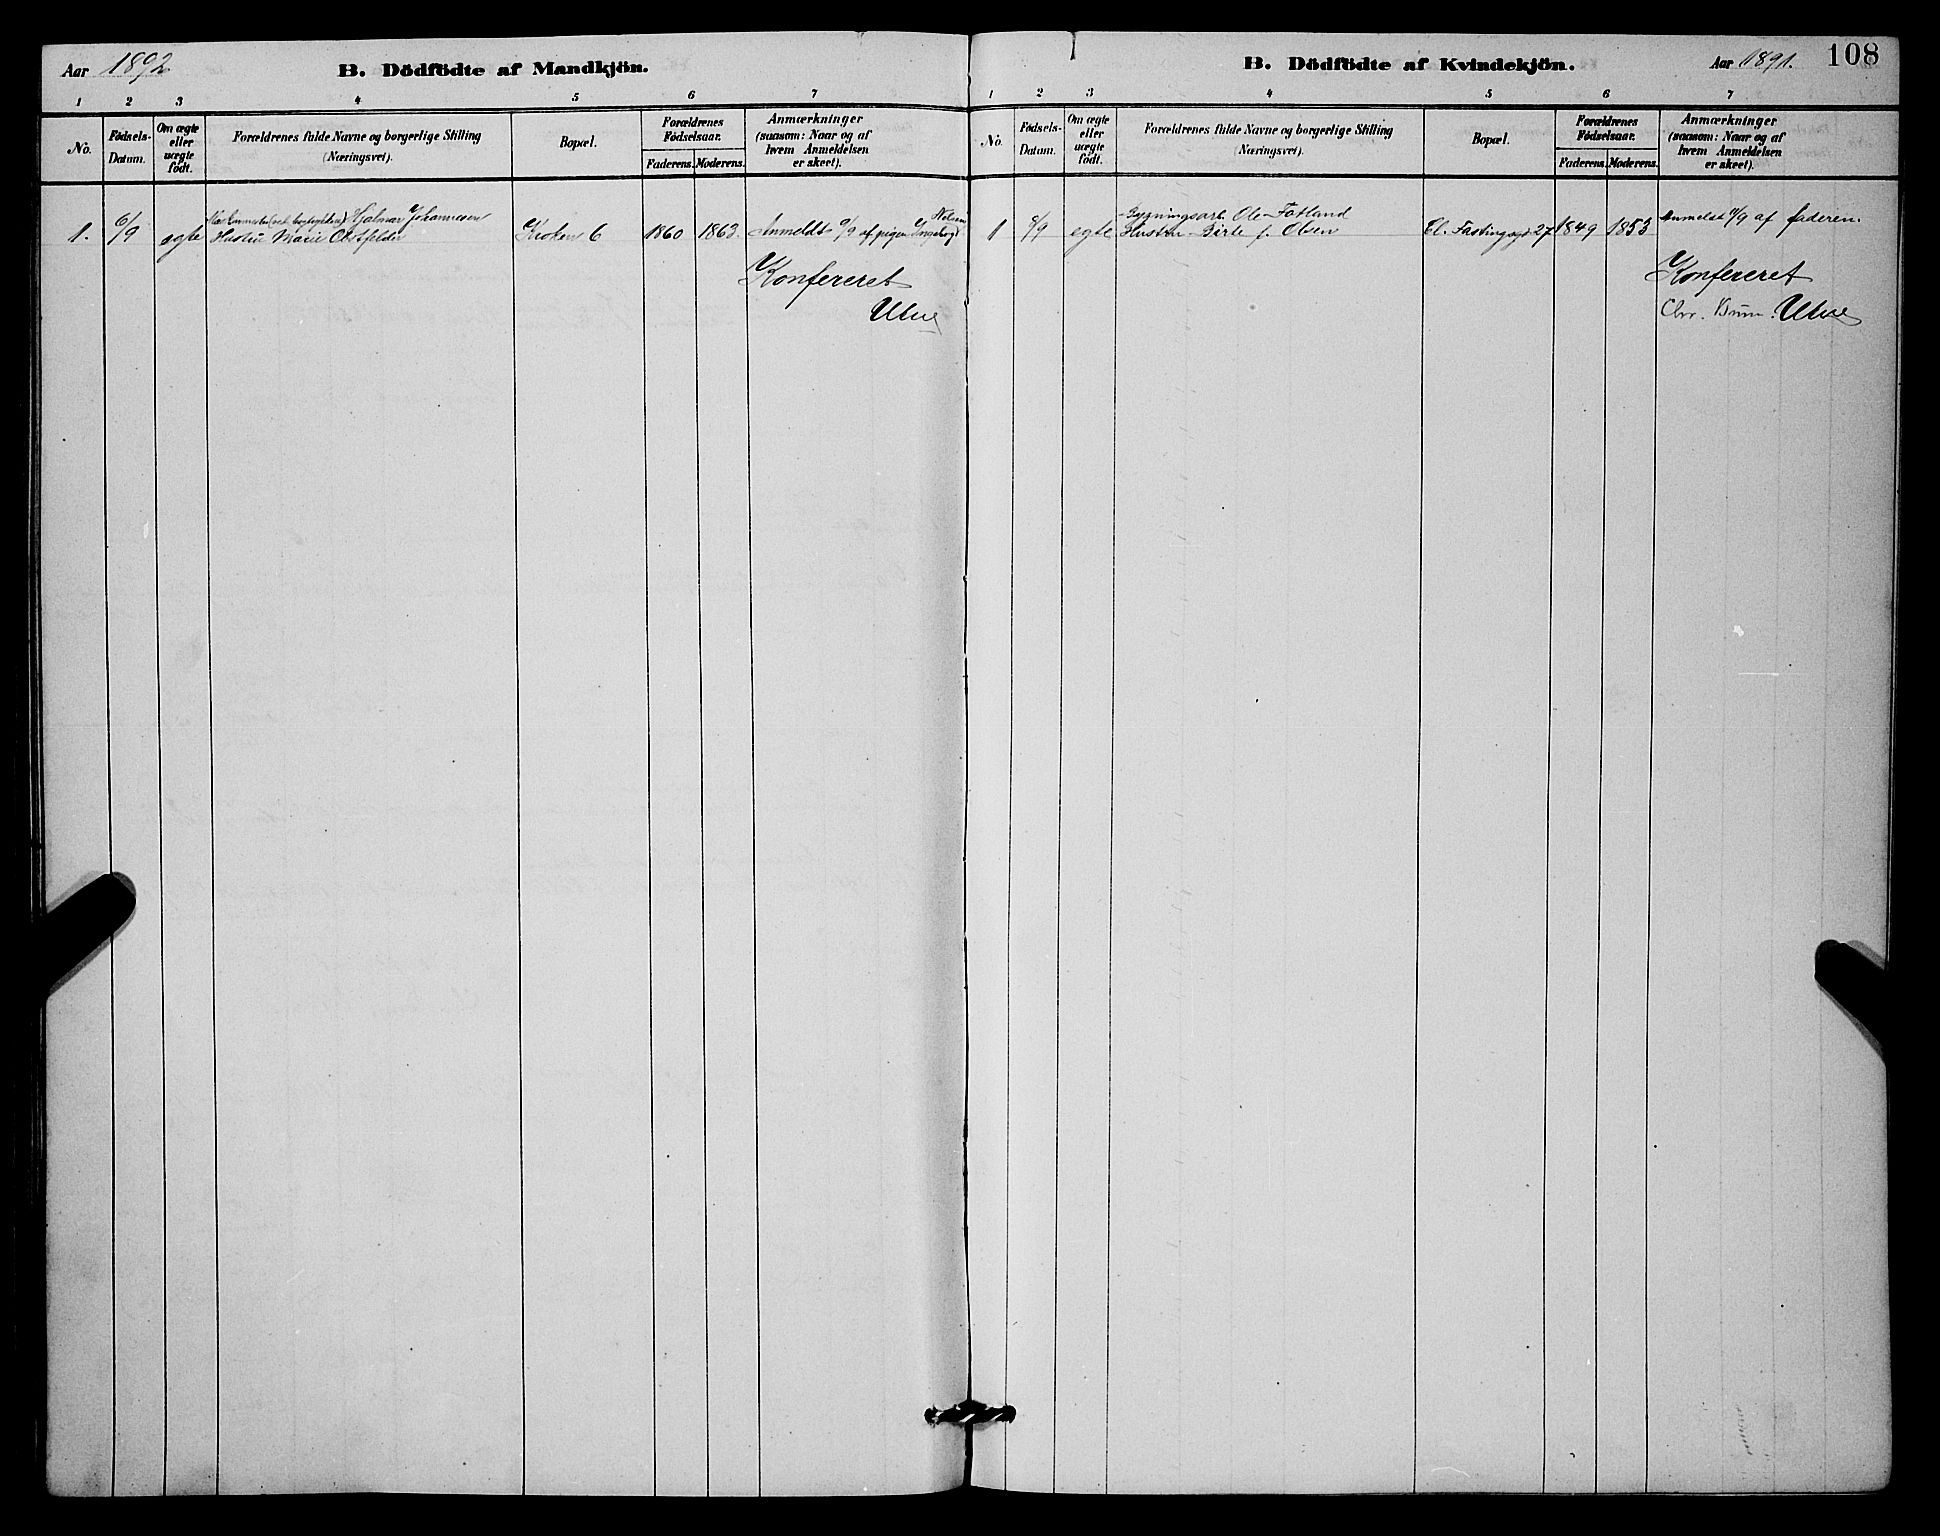 Aar 1892
B. Dödfödte af Mandkjön.
1 2 3 4 5 6 7
No.
Födsels-
Datum.
Om ægte
eller
uægte
födt.
Forældrenes fulde Navne og borgerlige Stilling
(Næringsvei).
Bopæl.
Forældrenes
Födselsaar.
Faderens. Moderens.
Anmærkninger
(saasom: Naar og af
hvem Anmeldelsen
er skeet).
Hjalmar Johannesen
Nilsen
1. 6/9 egte Hustru Marie Obstfelder Kroken 6 1860 1863. Anmeldt 9/9 af pigen Ingeborg
Konfereret
Ulve
B. Dödfödte af Kvindekjön.
Aar 1891.
108
1 2 3 4 5 6 7
No.
Födsels-
Datum.
Om ægte
eller
uægte
födt.
Forældrenes fulde Navne og borgerlige Stilling
(Næringsvei).
Bopæl.
Forældrenes
Födselsaar.
Faderens. Moderens.
Anmærkninger
(saasom: Naar og af
hvem Anmeldelsen
er skeet).
Bygningsarb. Ole Fatland
1 9/9 egte Hustru Birte f. Olsen Cl. Fastingsgd. 27 1849 1853 Anmeldt /9 af faderen.
Konfereret
Chr. Ulve